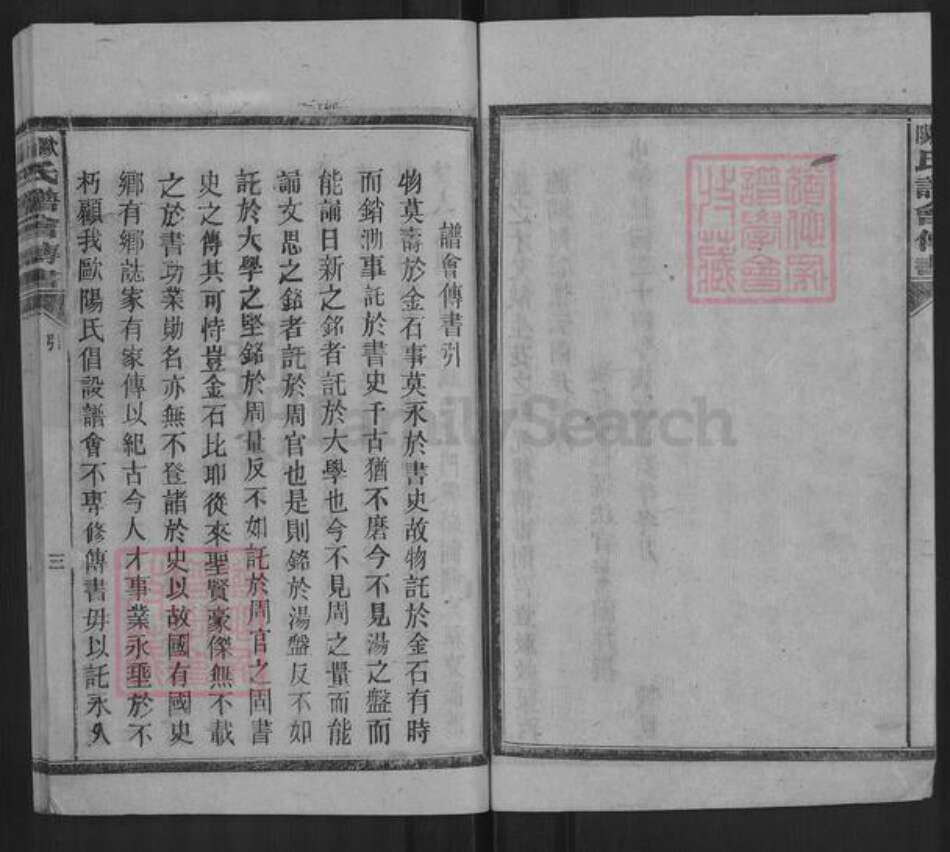 譜會傳書引
物莫壽於金石事莫永於書史故物託於金石有時
而銷泐事託於書史千古猶不磨今不見湯之盤而
能誦日新之銘者託於大學也今不見周之量而能
誦文思之銘者託於周官也是則銘於湯盤反不如
託於大學之堅銘於周量反不如託於周官之固書
史之傳其可恃豈金石比耶從來聖賢豪傑無不載
之於書功業勛名亦無不登諸於史以故國有國史
鄉有鄉誌家有家傳以紀古今人才事業永垂於不
朽顧我歐陽氏倡設譜會不專修傳書毋以託永久
氏譜會傳書
引
三
氏譜會傳書
FamilySearch